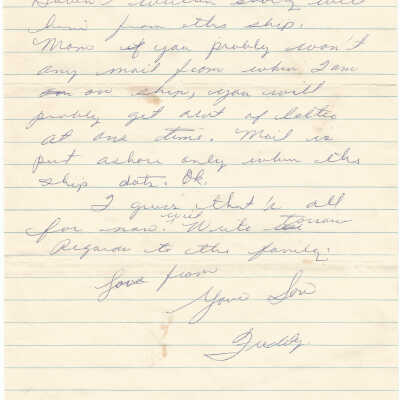 him from the ship.
Mom if you probly won't
any mail from when I am
on ship, you will
probly get alot of letter
at one time. Mail is
put ashore only when the
ship dots. Ok.
I guess that's all
for now. will Write
Regards to the family.
Love from
Your Son
Freddy.